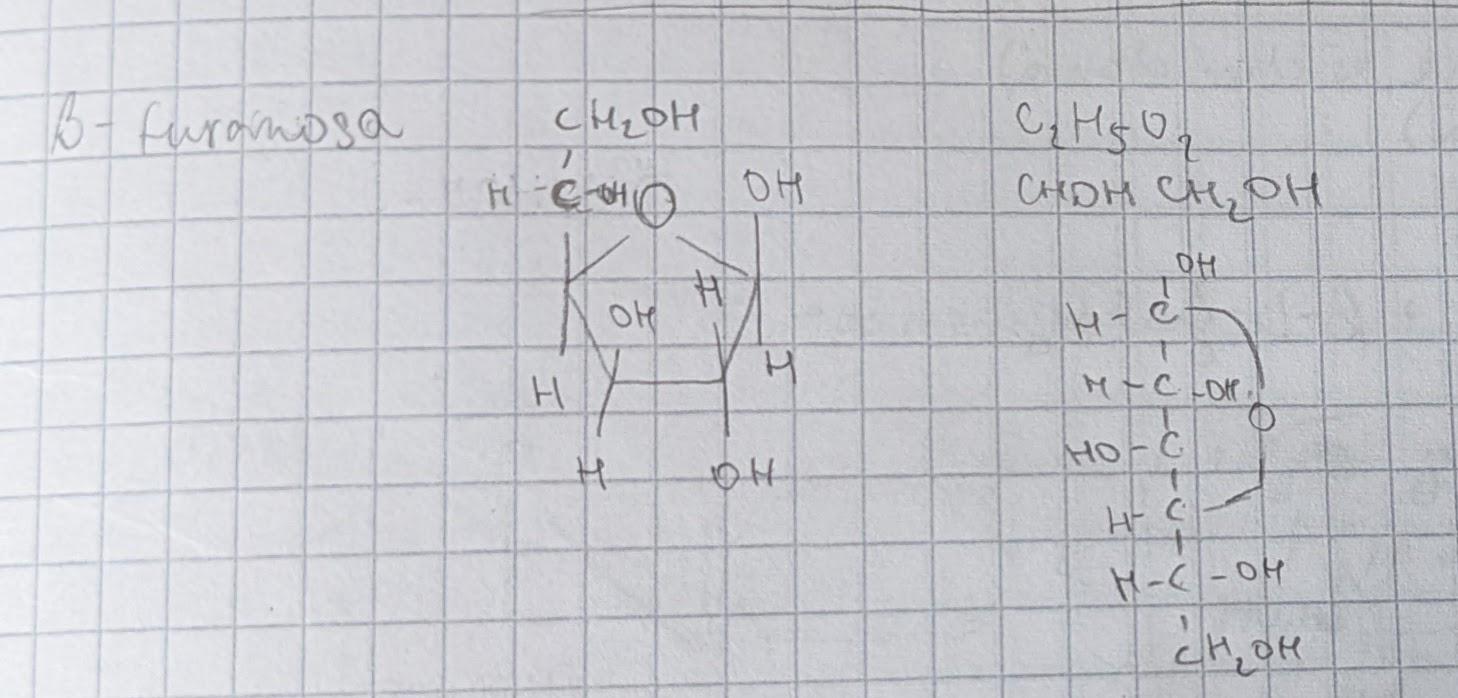 β- furanosa
CH₂OH
H - C - OH O OH
OH H
H H
H OH
C₂H₅O₂
CHOH CH₂OH
OH
H - C
H - C - OH
O
HO - C
H - C
H - C - OH
CH₂OH